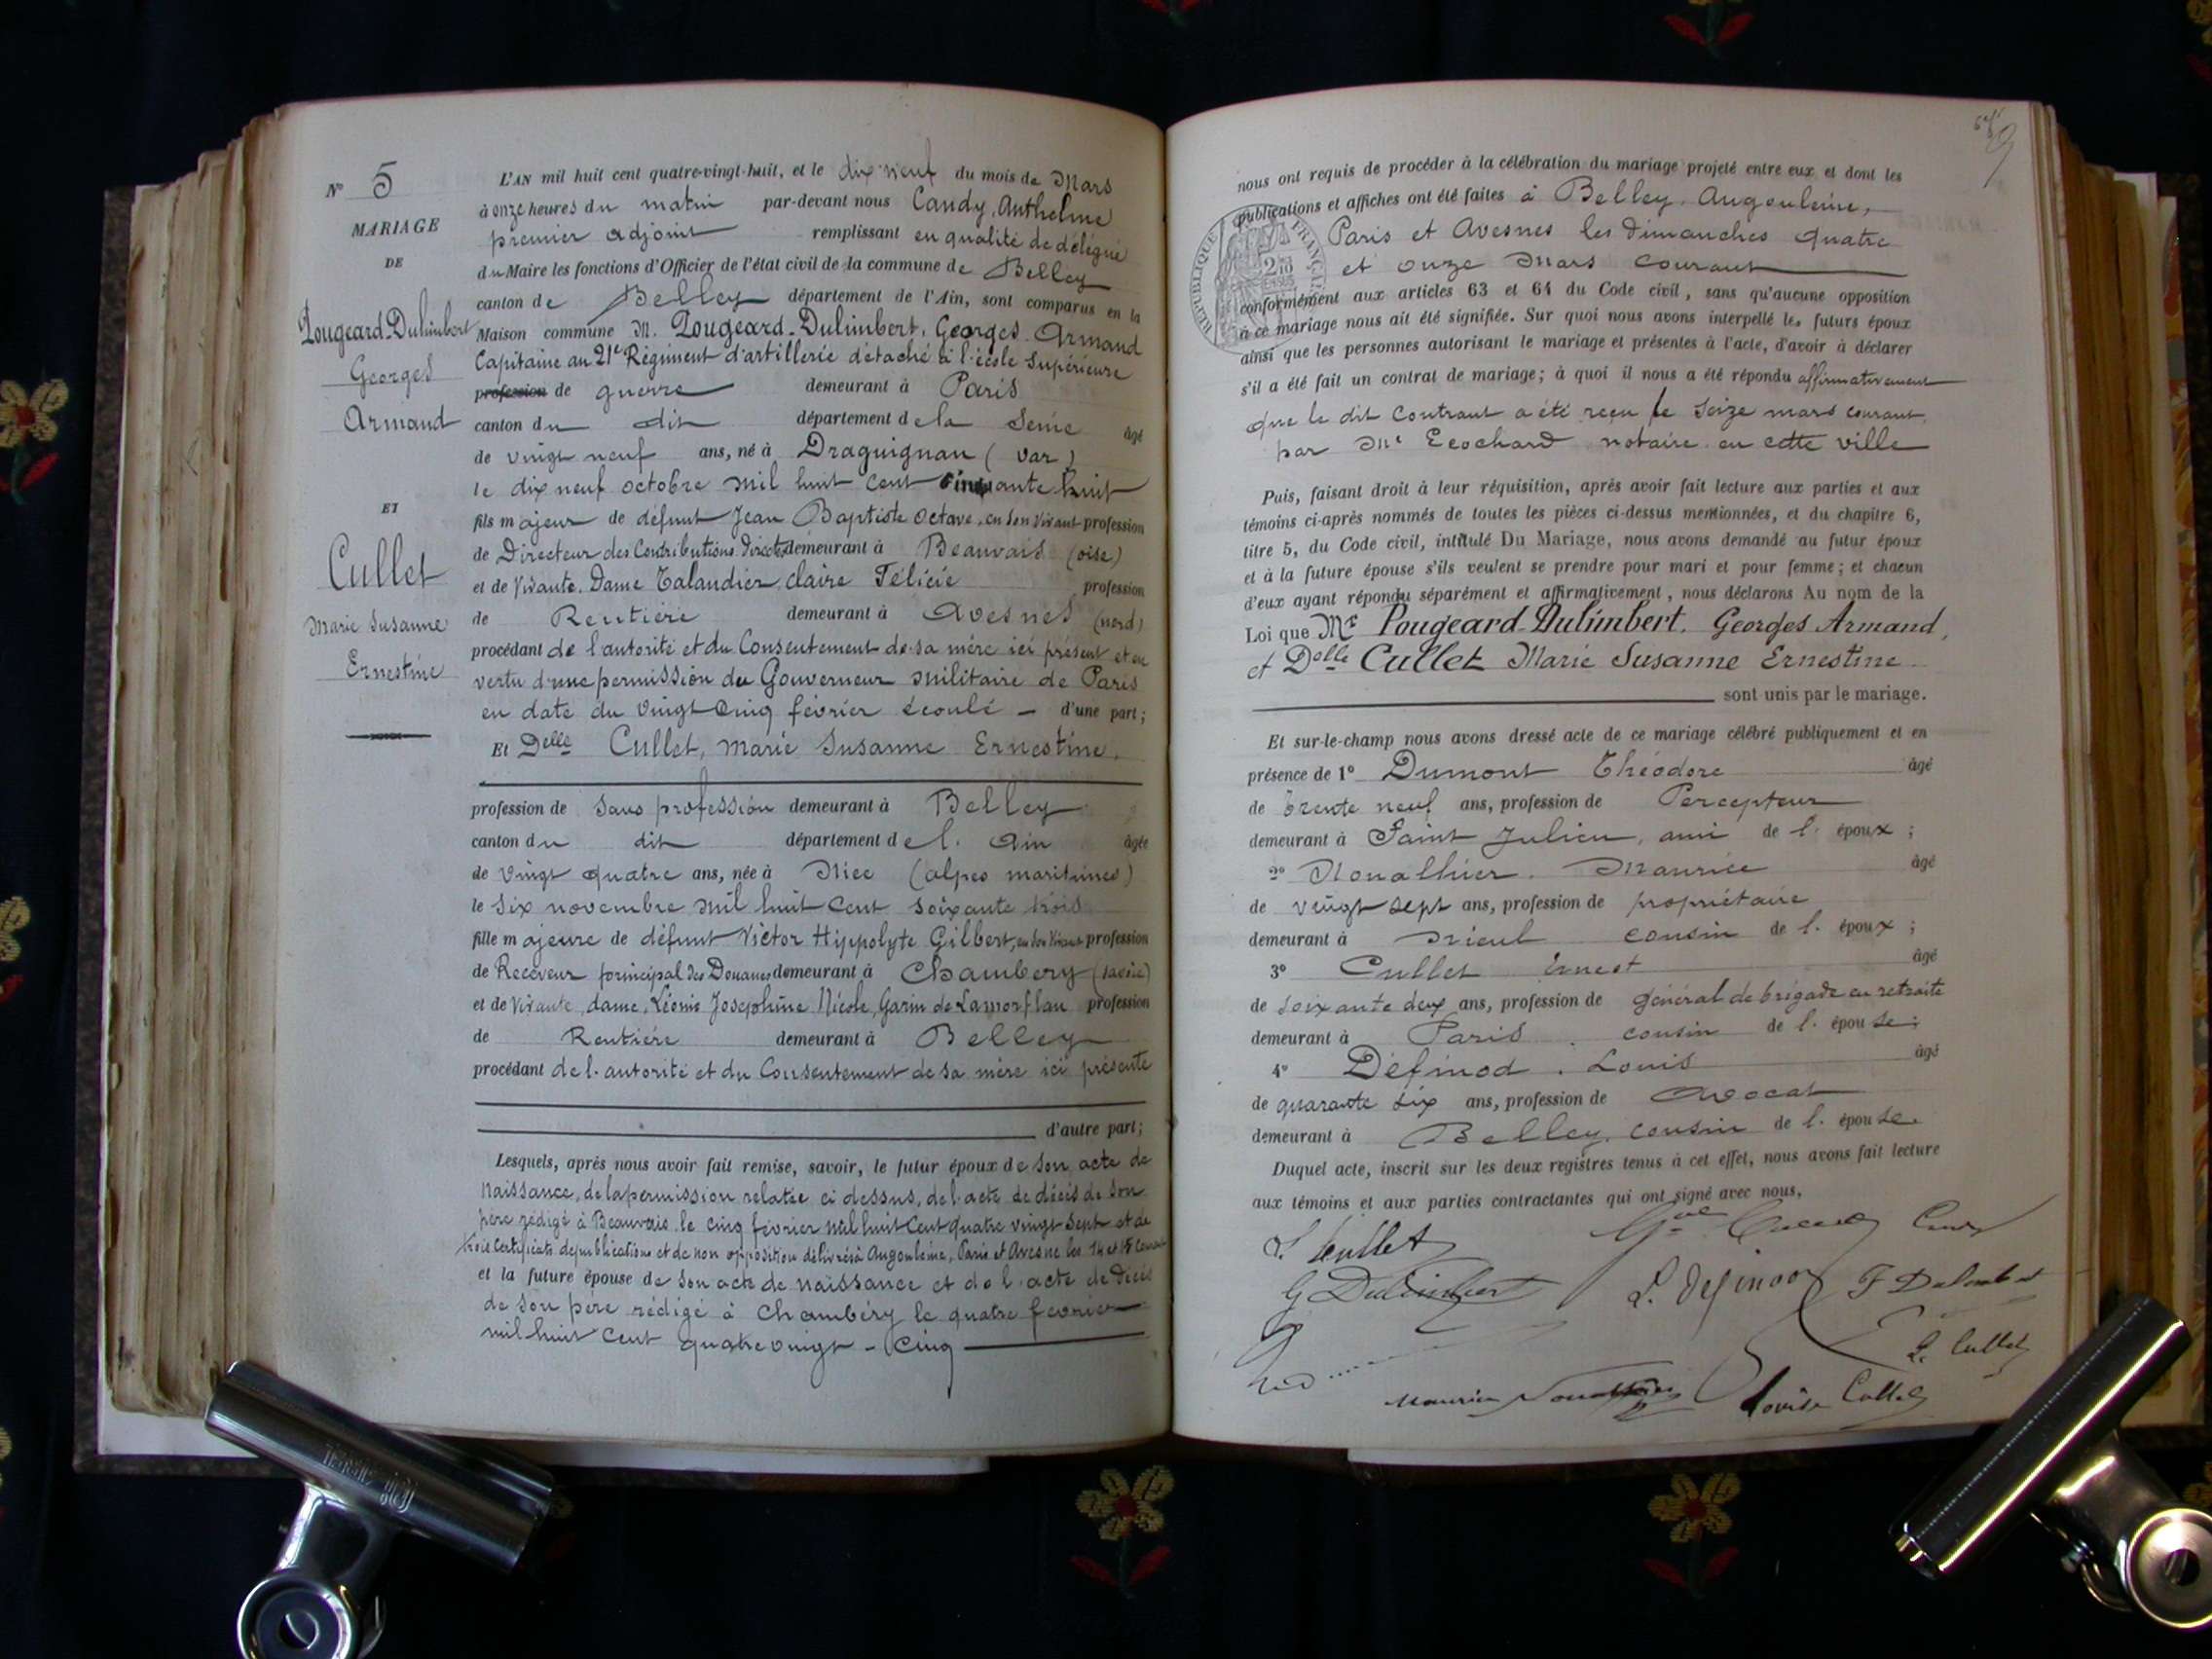 N° 5
MARIAGE
DE
Pougeard-Dulimbert
Georges
Armand
ET
Cullet
Marie Susanne
Ernestine
L'AN mil huit cent quatre-vingt-huit, et le dix neuf du mois de Mars
à onze heures du matin par-devant nous Candy, Anthelme
premier adjoint remplissant en qualité de délégué
du Maire les fonctions d'Officier de l'état civil de la commune de Belley
canton de Belley département de l'Ain, sont comparus en la
Maison commune M. Pougeard-Dulimbert, Georges Armand
Capitaine au 21e Régiment d'artillerie détaché à l'école Supérieure
profession de guerre demeurant à Paris
canton du dit département de la Seine âgé
de vingt neuf ans, né à Draguignan (Var)
le dix neuf octobre mil huit cent cinquante huit
fils majeur de défunt Jean Baptiste Octave, en son vivant profession
de Directeur des Contributions directes demeurant à Beauvais (oise)
et de vivante Dame Talandier, Claire Félicie profession
de Rentière demeurant à Avesnes (nord)
procédant de l'autorité et du Consentement de sa mère ici présent et en
vertu d'une permission du Gouverneur militaire de Paris
en date du vingt cinq février écoulé — d'une part;
Et Delle Cullet, Marie Susanne Ernestine,
profession de Sans profession demeurant à Belley
canton du dit département de l'Ain âgée
de vingt quatre ans, née à Nice (alpes maritimes)
le six novembre mil huit cent soixante trois
fille majeure de défunt Victor Hippolyte Gilbert, en son vivant profession
de Receveur principal des Douanes demeurant à Chambéry (Savoie)
et de Vivante, dame, Léonie Joséphine Nicole, Garin de Lamorflan profession
de Rentière demeurant à Belley
procédant de l'autorité et du Consentement de sa mère ici présente
d'autre part;
Lesquels, après nous avoir fait remise, savoir, le futur époux de Son acte de
Naissance, de la permission relatée ci dessus, de l'acte de décès de son
père rédigé à Beauvais le cinq février mil huit cent quatre vingt sept et de
trois Certificats de publications et de non opposition délivrés à Angoulême, Paris et Avesne les 14 et 15 Courant
et la future épouse de Son acte de naissance et de l'acte de décès
de Son père rédigé à Chambéry le quatre février
mil huit cent quatre vingt - Cinq
nous ont requis de procéder à la célébration du mariage projeté entre eux et dont les
publications et affiches ont été faites à Belley, Angoulême,
Paris et Avesnes les Dimanches quatre
et onze Mars courant
conformément aux articles 63 et 64 du Code civil, sans qu'aucune opposition
à ce mariage nous ait été signifiée. Sur quoi nous avons interpellé les futurs époux
ainsi que les personnes autorisant le mariage et présentes à l'acte, d'avoir à déclarer
s'il a été fait un contrat de mariage; à quoi il nous a été répondu affirmativement
que le dit Contraut a été reçu le Seize mars courant
par Me Ecochard notaire en cette ville
Puis, faisant droit à leur réquisition, après avoir fait lecture aux parties et aux
témoins ci-après nommés de toutes les pièces ci-dessus mentionnées, et du chapitre 6,
titre 5, du Code civil, intitulé Du Mariage, nous avons demandé au futur époux
et à la future épouse s'ils veulent se prendre pour mari et pour femme; et chacun
d'eux ayant répondu séparément et affirmativement, nous déclarons Au nom de la
Loi que Mr Pougeard-Dulimbert, Georges Armand,
et Delle Cullet Marie Susanne Ernestine
sont unis par le mariage.
Et sur-le-champ nous avons dressé acte de ce mariage célébré publiquement et en
présence de 1° Dumont Théodore âgé
de trente neuf ans, profession de Percepteur
demeurant à Saint Julien, ami de l'époux;
2° Noualhier, Maurice âgé
de vingt sept ans, profession de propriétaire
demeurant à Nieul cousin de l'époux;
3° Cullet Ernest âgé
de soixante deux ans, profession de général de brigade en retraite
demeurant à Paris, cousin de l'épouse;
4° Définod, Louis âgé
de quarante six ans, profession de Avocat
demeurant à Belley, cousin de l'épouse
Duquel acte, inscrit sur les deux registres tenus à cet effet, nous avons fait lecture
aux témoins et aux parties contractantes qui ont signé avec nous,
S. Cullet
G Dulimbert
L. Definod
L. Cullet
Maurice Noualhier
Louise Cullet
RÉPUBLIQUE FRANÇAISE